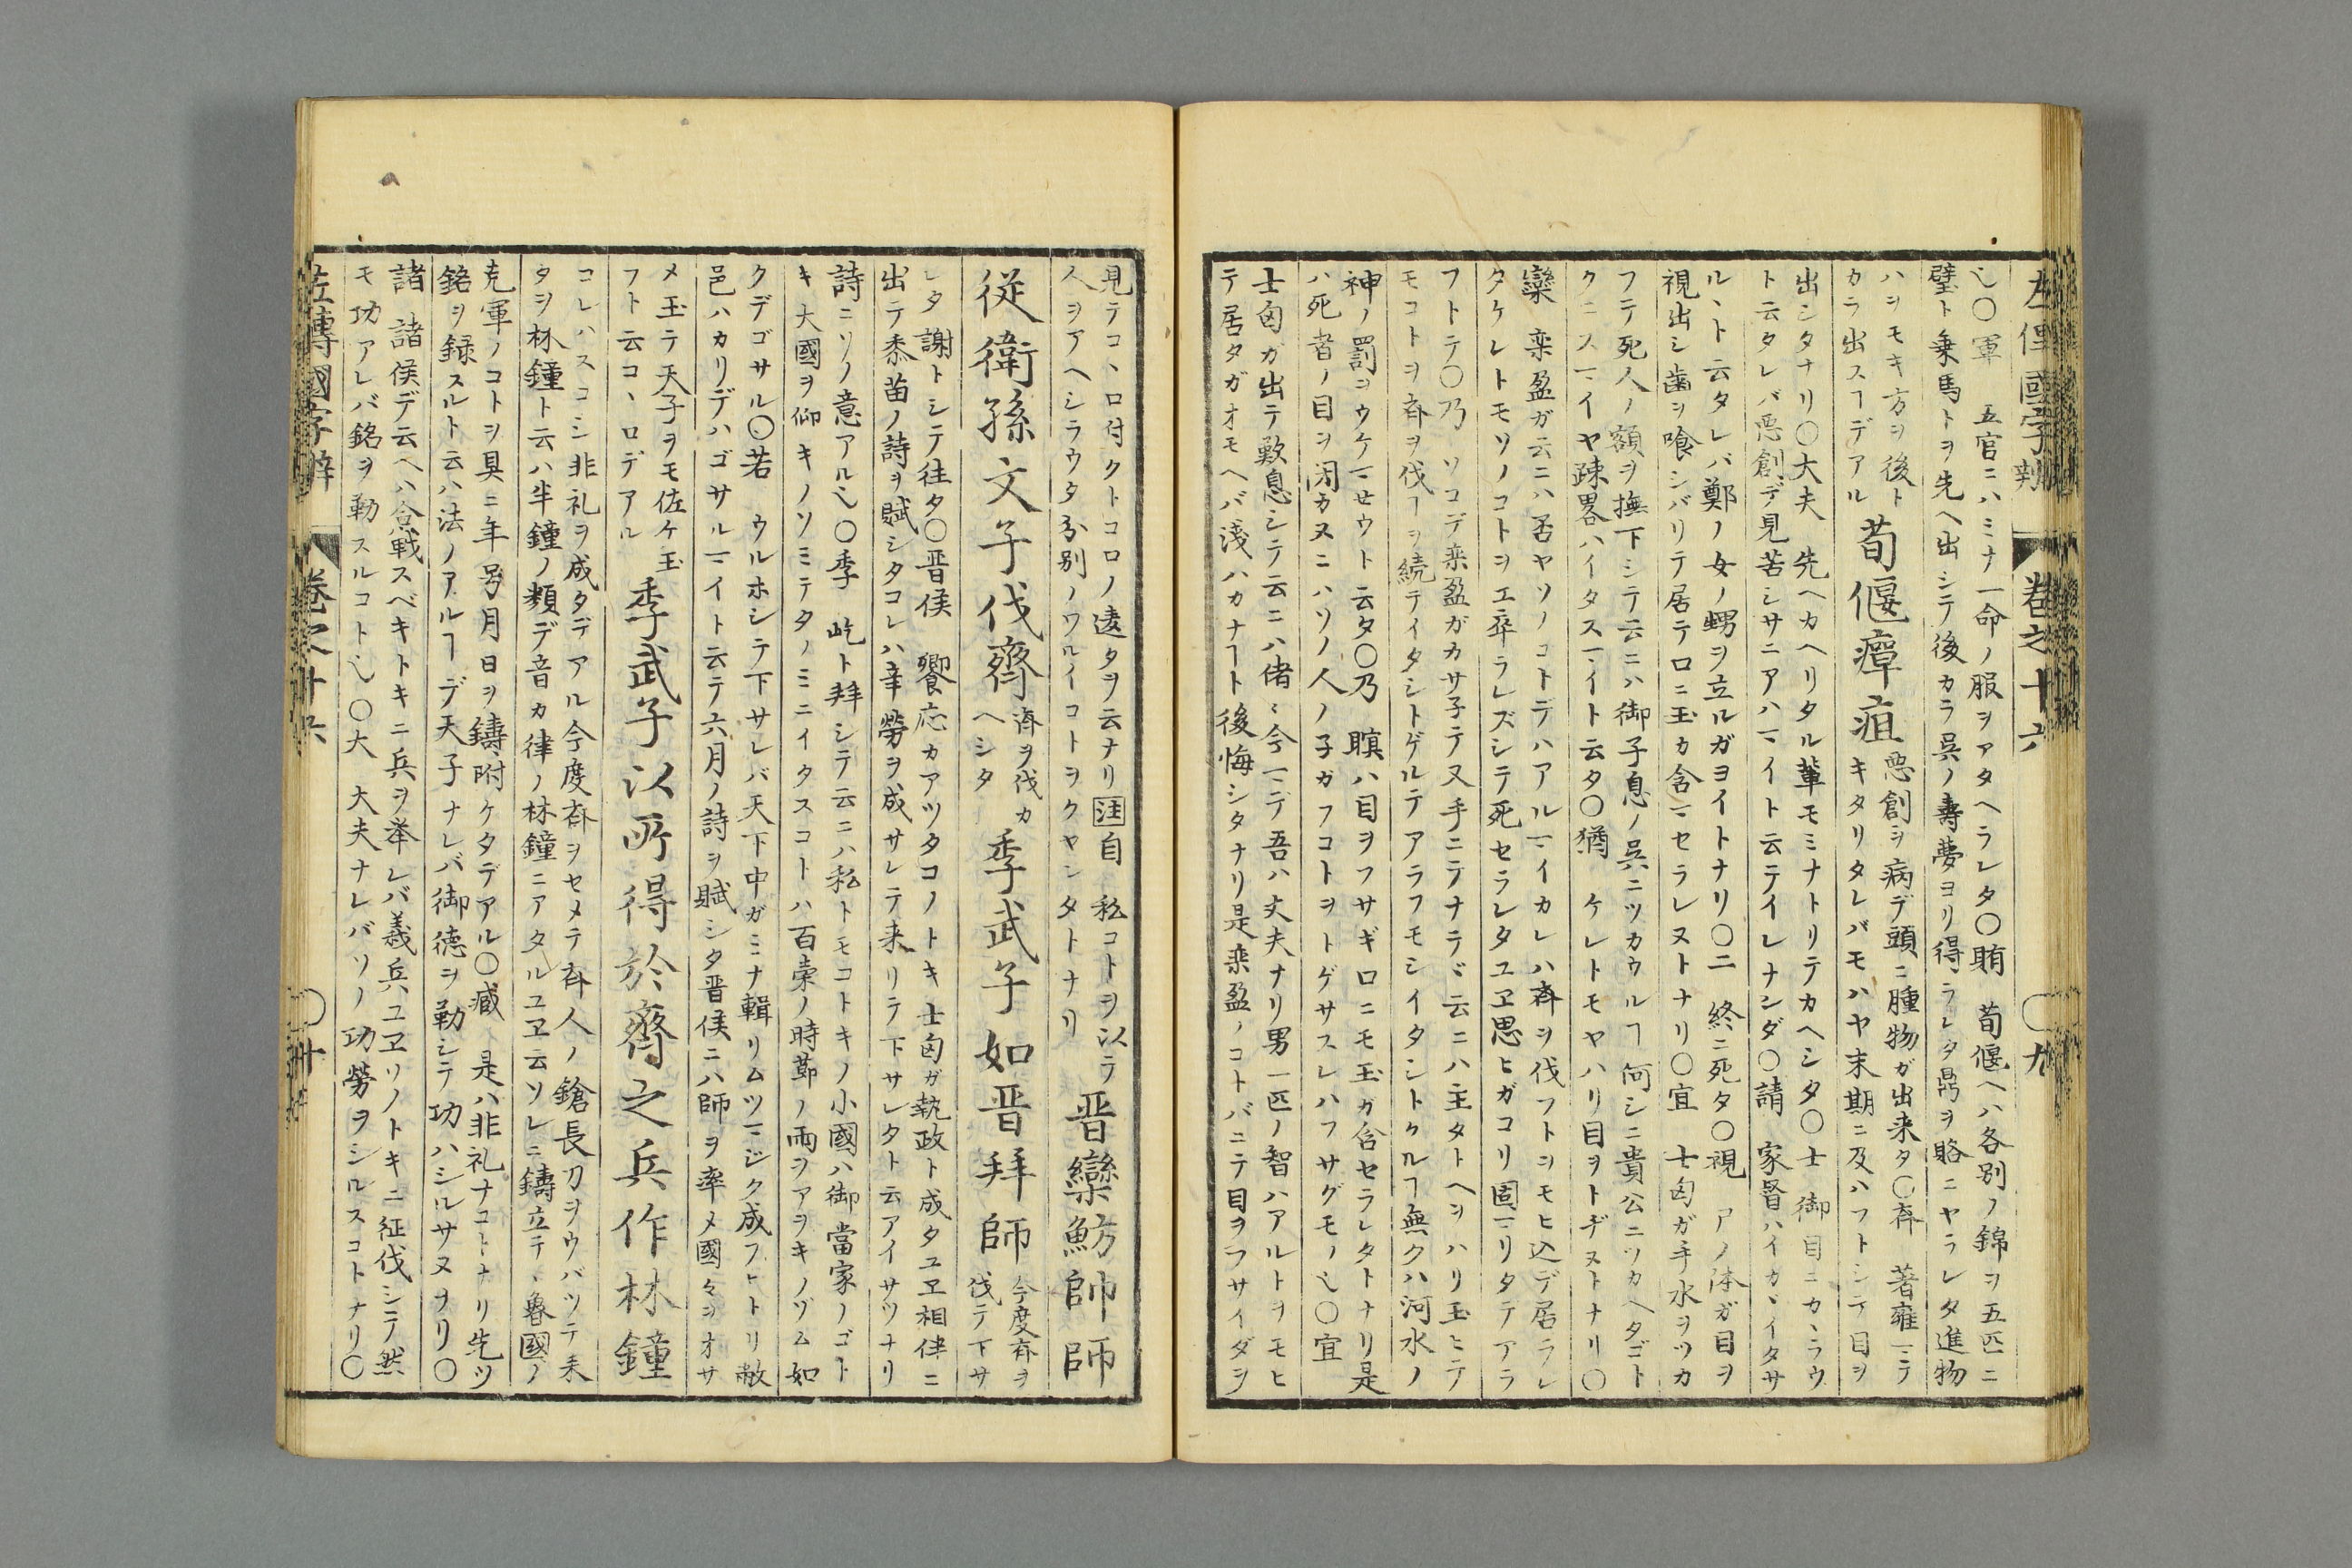 左傳國字辯 巻之十六 〇九
乄〇軍 五官ニハミナ一命ノ服ヲアタヘラレタ〇賄 荀偃ヘハ各別ノ錦ヲ五匹ニ
璧ト乗馬トヲ先ヘ出シテ後カラ呉ノ壽夢ヨリ得ラレタ鼎ヲ賂ニヤラレタ進物
ハヲモキ方ヲ後ト
カラ出スヿデアル
荀偃癉疽
悪創ヲ病デ頭ニ腫物ガ出来タ〇斉 著雍マテ
キタリタレバモハヤ末期ニ及ハフトシテ目ヲ
出シタナリ〇大夫 先ヘカヘリタル輩モミナトリテカヘシタ〇士 御目ニカヽラウ
ト云タレバ悪創デ見苦シサニアハマイト云テイレナンダ〇請 家督ハイカヾイタサ
ルヽト云タレバ鄭ノ女ノ甥ヲ立ルガヨイトナリ〇二 終ニ死タ〇視 アノ体ガ目ヲ
視出シ歯ヲ喰シバリテ居テロニ玉カ含マセラレヌトナリ〇宜 士匄ガ手水ヲツカ
フテ死人ノ額ヲ撫下シテ云ニハ御子息ノ呉ニツカウルヿ何シニ貴公ニツカヘタゴト
クニスマイヤ疎畧ハイタスマイト云タ〇猶 ケレトモヤハリ目ヲトヂヌトナリ〇
欒 栾盈ガ云ニハ否ヤソノコトデハアルマイカレハ斉ヲ伐フトヲモヒ込デ居ラレ
タケレトモソノコトヲエ卒ラレズシテ死セラレタユヱ思ヒガコリ固マリタテアラ
フトテ〇乃 ソコデ栾盈ガカサ子テ又手ニテナテヾ云ニハ主タトヘヲハリ玉ヒテ
モコトヲ斉ヲ伐ヿヲ続テイタシトゲルテアラフモシイタシトケルヿ無クハ河水ノ
神ノ罰ヲウケマセウト云タ〇乃 瞑ハ目ヲフサギロニモ玉ガ含セラレタトナリ是
ハ死者ノ目ヲ閉カヌニハソノ人ノ子ガフコトヲトゲサスレハフサグモノ乄〇宜
士匄カ出テ歎息シテ云ニハ偖〻今マデ吾ハ丈夫ナリ男一匹ノ智ハアルトヲモヒ
テ居タガオモヘバ淺ハカナヿト後悔シタナリ是栾盈ノコトバニテ目ヲフサイダヲ
見テコヽロ付クトコロノ遠タヲ云ナリ 注 自 私コトヲ以テ
人ヲアヘシラウタ分別ノワルイコトヲクヤンタトナリ
晋欒魴帥師
従衛孫文子伐齊
斉ヲ伐カ
ヘシタ
季武子如晋拜師
今度斉ヲ
伐テ下サ
レタ謝トシテ往タ〇晋侯 饗応カアツタコノトキ士匄ガ執政ト成タユヱ相伴ニ
出テ黍苗ノ詩ヲ賦シタコレハ辛勞ヲ成サレテ来リテ下サレタト云アイサツナリ
詩ニソノ意アル乄〇季 屹ト拜シテ云ニハ私トモコトキノ小國ハ御當家ノゴト
キ大國ヲ仰キノソミテタノミニイタスコトハ百穀ノ時節ノ雨ヲアヲキノヅム如
クデゴサル〇若 ウルホシテ下サレバ天下中ガミナ輯リムツマジク成フトリ敝
邑ハカリデハゴサルマイト云テ六月ノ詩ヲ賦シタ晋侯ニハ師ヲ率メ國々ヲオサ
メ玉テ天子ヲモ佐ケ玉
フト云コヽロデアル
季武子以所得於齊之兵作林鐘
コレハスコシ非礼ヲ成タデアル今度斉ヲセメテ斉人ノ鎗長刀ヲウバツテ来
タヲ林鐘ト云ハ半鐘ノ類デ音カ律ノ林鐘ニアタルユヱ云ソレニ鑄立テヽ魯國ノ
克軍ノコトヲ具ニ年号月日ヲ鑄附ケタデアル〇臧 是ハ非礼ナコトナリ先ツ
銘ヲ録スルト云ハ法ノアルヿデ天子ナレバ御徳ヲ勒シテ功ハシルサヌヲリ〇
諸 諸侯デ云ヘハ合戰スベキトキニ兵ヲ挙レバ義兵ユヱソノトキニ征伐シテ然
モ功アレバ銘ヲ勒スルコト乄〇大 大夫ナレバソノ功勞ヲシルスコトナリ〇
左傳國字辯 巻之十六 〇十